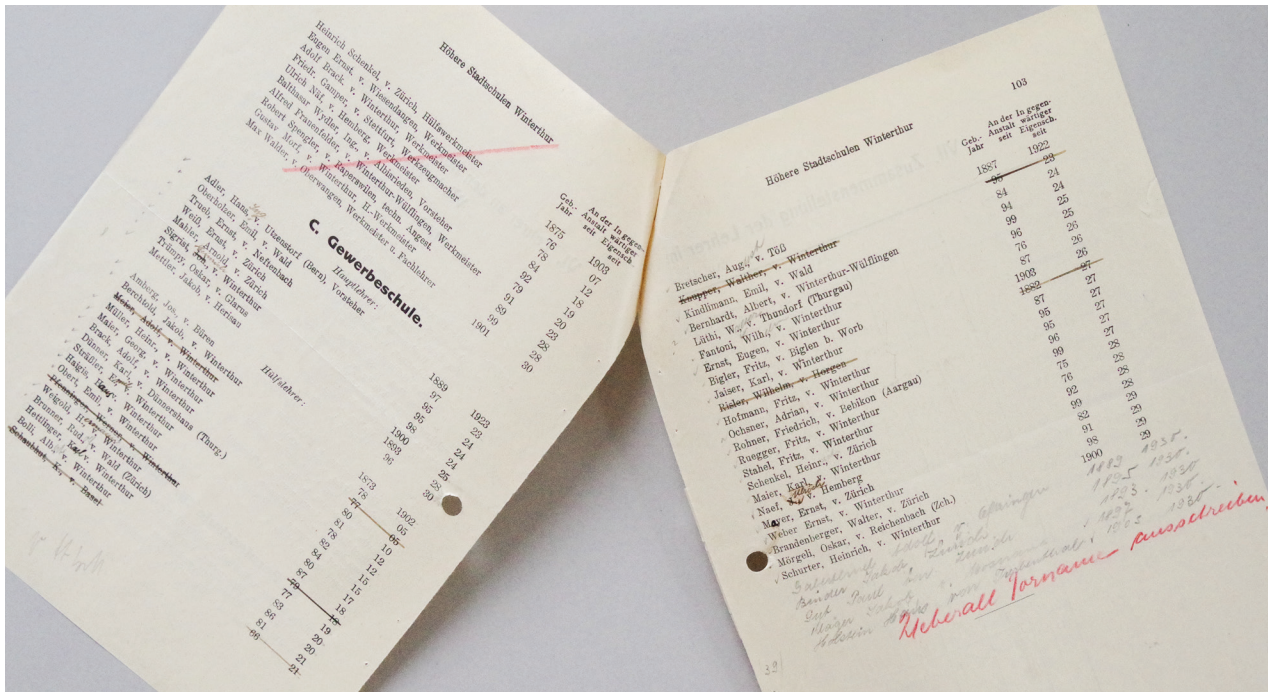 Höhere Stadtschulen Winterthur
Heinrich Schenkel, v. Zürich, Hülfswerkmeister
Eugen Ernst, v. Wiesendangen, Werkmeister
Adolf Brack, v. Winterthur, Werkmeister
Friedr. Gamper, v. Stettfurt, Werkzeugmacher
Ulrich Näf, v. Hemberg, Werkmeister
Balthasar Wydler, Ing., v. Albisrieden, Vorsteher
Alfred Frauenfelder, v. Winterthur-Wülflingen, Werkmeister
Robert Spengler, v. Raperswilen, techn. Angest.
Gustav Morf, v. Winterthur, H.-Werkmeister
Max Walder, v. Oberwangen, Werkmeister u. Fachlehrer
C. Gewerbeschule.
Geb.- Jahr
An der Anstalt seit
In gegen- wärtiger Eigensch. seit
Hauptlehrer:
Adler, Hans, v. Utzenstorf (Bern), Vorsteher
Oberholzer, Emil, v. Wald
Trueb, Ernst, v. Neftenbach
Weiß, Ernst, v. Zürich
Mahler, Arnold, v. Zürich
Sigrist, v. Winterthur
Trümpy, Oskar, v. Glarus
Mettler, Jakob, v. Herisau
1875 1903
76 07
78 12
84 18
92 19
79 20
91 23
89 28
99 28
1901 30
Hülfslehrer:
Amberg, Jos., v. Büren
Berchtold, Jakob, v. Winterthur
Meier, Adolf, v. Winterthur
Müller, Heinr., v. Winterthur
Maier, Georg, v. Winterthur
Brack, Adolf, v. Winterthur
Dünner, Karl, v. Dünnershaus (Thurg.)
Sträßler, v. Winterthur
Haggis, v. Winterthur
Obert, Emil, v. Winterthur
Weigold, v. Winterthur
Brunner, Rud., v. Wald (Zürich)
Hettlinger, Karl, v. Winterthur
Bolli, Alb., v. Winterthur
Schaublin, K., v. Basel
1889 1923
97 23
95 24
95 24
98 24
1900 25
1893 28
96 30
1873 1902
78 05
77 05
80 10
81 12
78 12
82 15
84 17
80 18
87 18
79 19
77 20
83 20
86 21
81 21
66 21
103
Höhere Stadtschulen Winterthur
Geb.- Jahr
An der Anstalt seit
In gegen- wärtiger Eigensch. seit
Bretscher, August v. Töß
Knupper, Walther, v. Winterthur
Kindlimann, Emil, v. Wald
Bernhardt, Albert, v. Winterthur-Wülflingen
Lüthi, v. Thundorf (Thurgau)
Fantoni, Wilh., v. Winterthur
Ernst, Eugen, v. Winterthur
Bigler, Fritz, v. Biglen b. Worb
Jaiser, Karl, v. Winterthur
Risler, Wilhelm, v. Horgen
Hofmann, Fritz, v. Winterthur
Ochsner, Adrian, v. Winterthur
Rohner, Friedrich, v. Rebikon (Aargau)
Ruegger, Fritz, v. Winterthur
Stahel, Fritz, v. Winterthur
Schenkel, Heinr., v. Zürich
Maier, Karl, v. Winterthur
Naef, v. Hemberg
Mayer, Ernst, v. Zürich
Weber Ernst, v. Winterthur
Brandenberger, Walter, v. Zürich
Mörgeli, Oskar, v. Reichenbach (Zch.)
Schurter, Heinrich, v. Winterthur
1887 1922
95 23
84 24
94 24
99 25
96 25
76 26
87 26
1903 26
1882 27
87 27
95 27
95 27
96 27
99 28
75 28
76 29
92 29
99 29
82 29
91 29
98 29
1900
1889 1930.
1895 1930.
1893 1930
1897 1930
1902 1930.
Ueberall Vorname ausschreiben
39